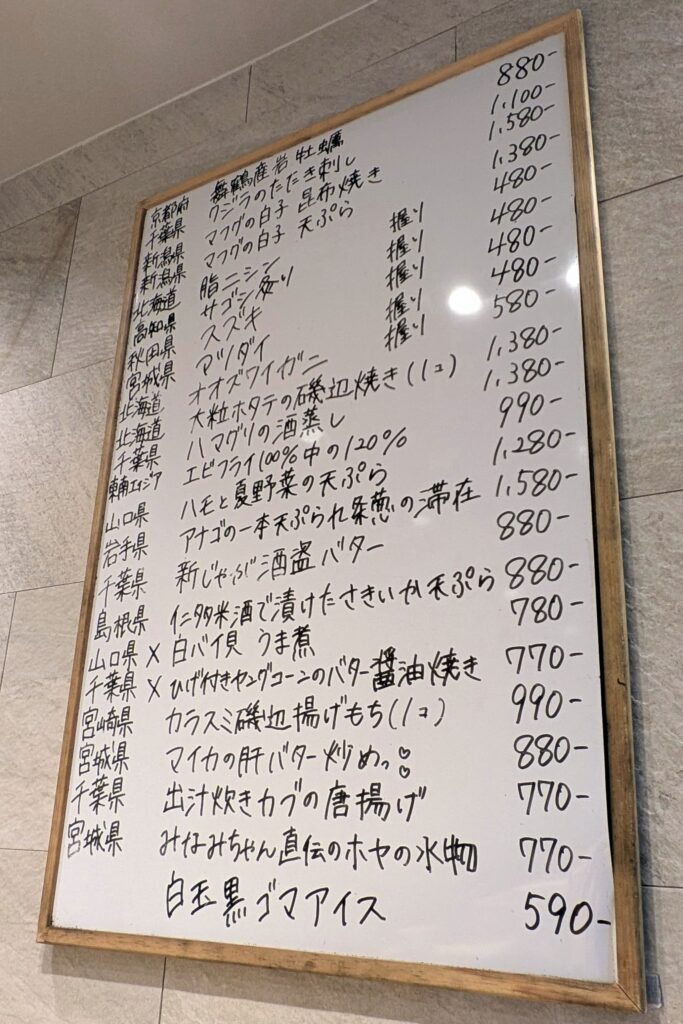 京都府 舞鶴産岩牡蠣 880-
千葉県 クジラのたたき刺し 1,100-
新潟県 マフグの白子 昆布焼き 1,580-
新潟県 マフグの白子 天ぷら 1,380-
北海道 脂ニシン 握り 480-
高知県 サゴシ炙り 握り 480-
秋田県 スズキ 握り 480-
宮城県 マツダイ 握り 480-
北海道 オオズワイガニ 握り 580-
北海道 大粒ホタテの磯辺焼き(1コ) 1,380-
千葉県 ハマグリの酒蒸し 1,380-
東南エイジア エビフライ100%中の120% 990-
山口県 ハモと夏野菜の天ぷら 1,280-
岩手県 アナゴの一本天ぷら 条葱の滞在 1,580-
千葉県 新じゃが酒盗バター 880-
島根県 仁多米酒で漬けたさきいか天ぷら 880-
山口県 × 白バイ貝 うま煮 780-
千葉県 × ひげ付きヤングコーンのバター醤油焼き 770-
宮崎県 カラスミ磯辺揚げもち(1コ) 990-
宮城県 マイカの肝バター炒めっ♡ 880-
千葉県 出汁炊きカブの唐揚げ 770-
宮城県 みなみちゃん直伝のホヤの水物 770-
白玉黒ゴマアイス 590-